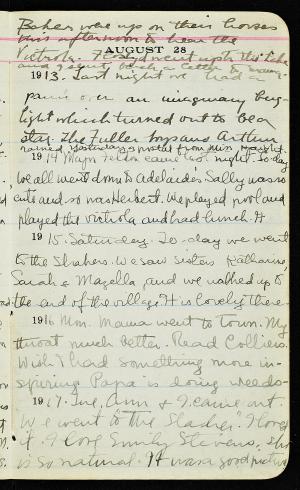 Baker were up on their horses
this afternoon to hear the
Victrola. went up the lake
and
AUGUST 28
1913. Last night we had a
panic over an imaginary burg-
light which turned out to be a
star. The Fuller boys and Arthur
rained yesterday a postal from
1914 Major came last night. To day
we all went down to Adelaide's Sally was so
cute and so was Herbert. We played pool and
played the victrola and had lunch. H
1915. Saturday. To-day we went
to the Shakers. We saw Sisters Katharine,
Sarah & Mazella and we walked up to
the end of the village. It is lovely there
1916 Mon. Mama went to town. My
throat much better. Read Colliers.
Wish I had something more in-
spiring. Papa is doing weeds-
1917. Tue, Ann & I came out.
We went to the "Slacker." I loved
it. I love Emily Stevens, She
is so natural. It was a good picture